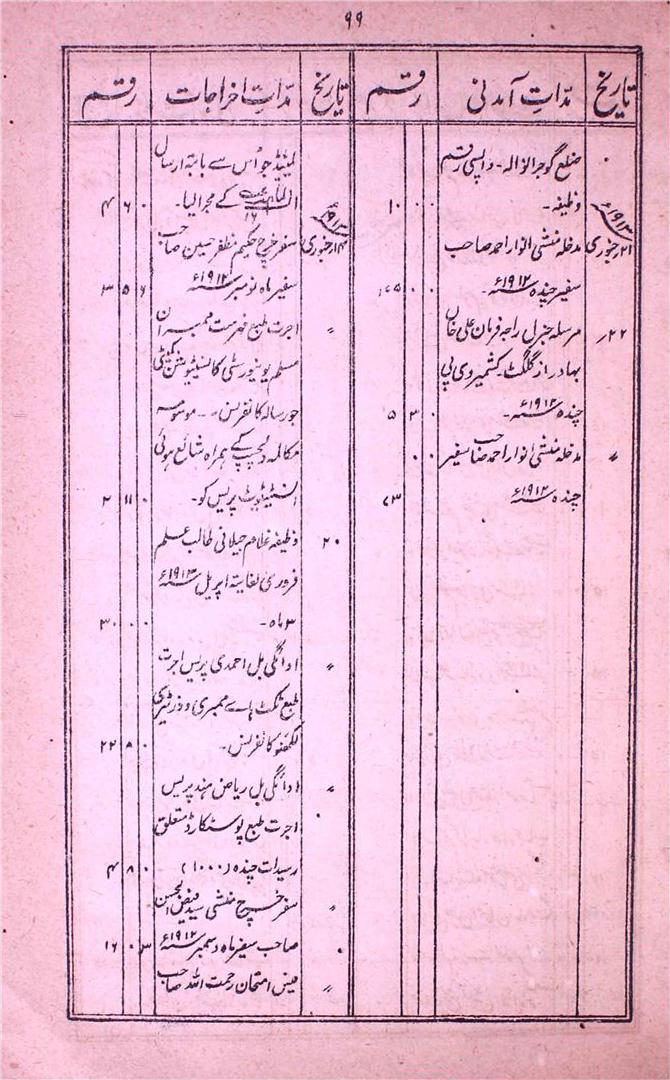 ۹۹
تاریخ مدّاتِ آمدنی رقم
ضلع گوجرانوالہ - واپسی رقم
وظیفہ - ۱۰ ۰ ۰
۱۹۱۳ء
۲۱ر جنوری مدخلہ منشی انوار احمد صاحب
سفیر چندہ ۱۹۱۲ء -
۲۲ر مرسلہ جنرل راجہ فرمان علی خاں
بہادر از گلگت - کشمیر وی پی
چندہ ۱۹۱۲ء - ۵ ۳ ۰
〃 مدخلہ منشی انوار احمد صاحب سفیر
چندہ ۱۹۱۲ء
تاریخ مدّاتِ اخراجات رقم
لمیٹڈ جو اُس سے بابتہ ارسال
کے مجرا لیا - ۴ ۶ ۰
۱۹۱۳ء
۱۴ر جنوری سفر خرچ حکیم مظفر حسین صاحب
سفیر ماہ نومبر ۱۹۱۲ء ۳ ۵ ۶
〃 اجرت طبع فہرست ممبران
مسلم یونیورسٹی کانسٹیٹیوشن کمیٹی
جو رسالہ کانفرنس - موسومہ
مکالمہ دلچسپ کے ہمراہ شائع ہوئی
انسٹیٹیوٹ پریس کو - ۲ ۱۱ ۰
۲۰ وظیفہ غلام جیلانی طالب علم
فروری لغایتہ اپریل ۱۹۱۳ء
۳ ماہ - ۳۰ ۰ ۰
〃 ادائگی بل احمدی پریس اجرت
طبع ٹکٹ ہاے ممبری و وزیٹری
لکھنؤ کانفرنس - ۲۲ ۸ ۰
〃 ادائگی بل ریاض ہند پریس
اجرت طبع پوسٹکارڈ متعلق
رسیدات چندہ (۱۰۰۰) ۴ ۸ ۰
〃 سفر خرچ منشی سید فیض الحسن
صاحب سفیر ماہ دسمبر ۱۹۱۲ء ۱۶ ۰ ۳
〃 فیس امتحان رحمت اللہ صاحب